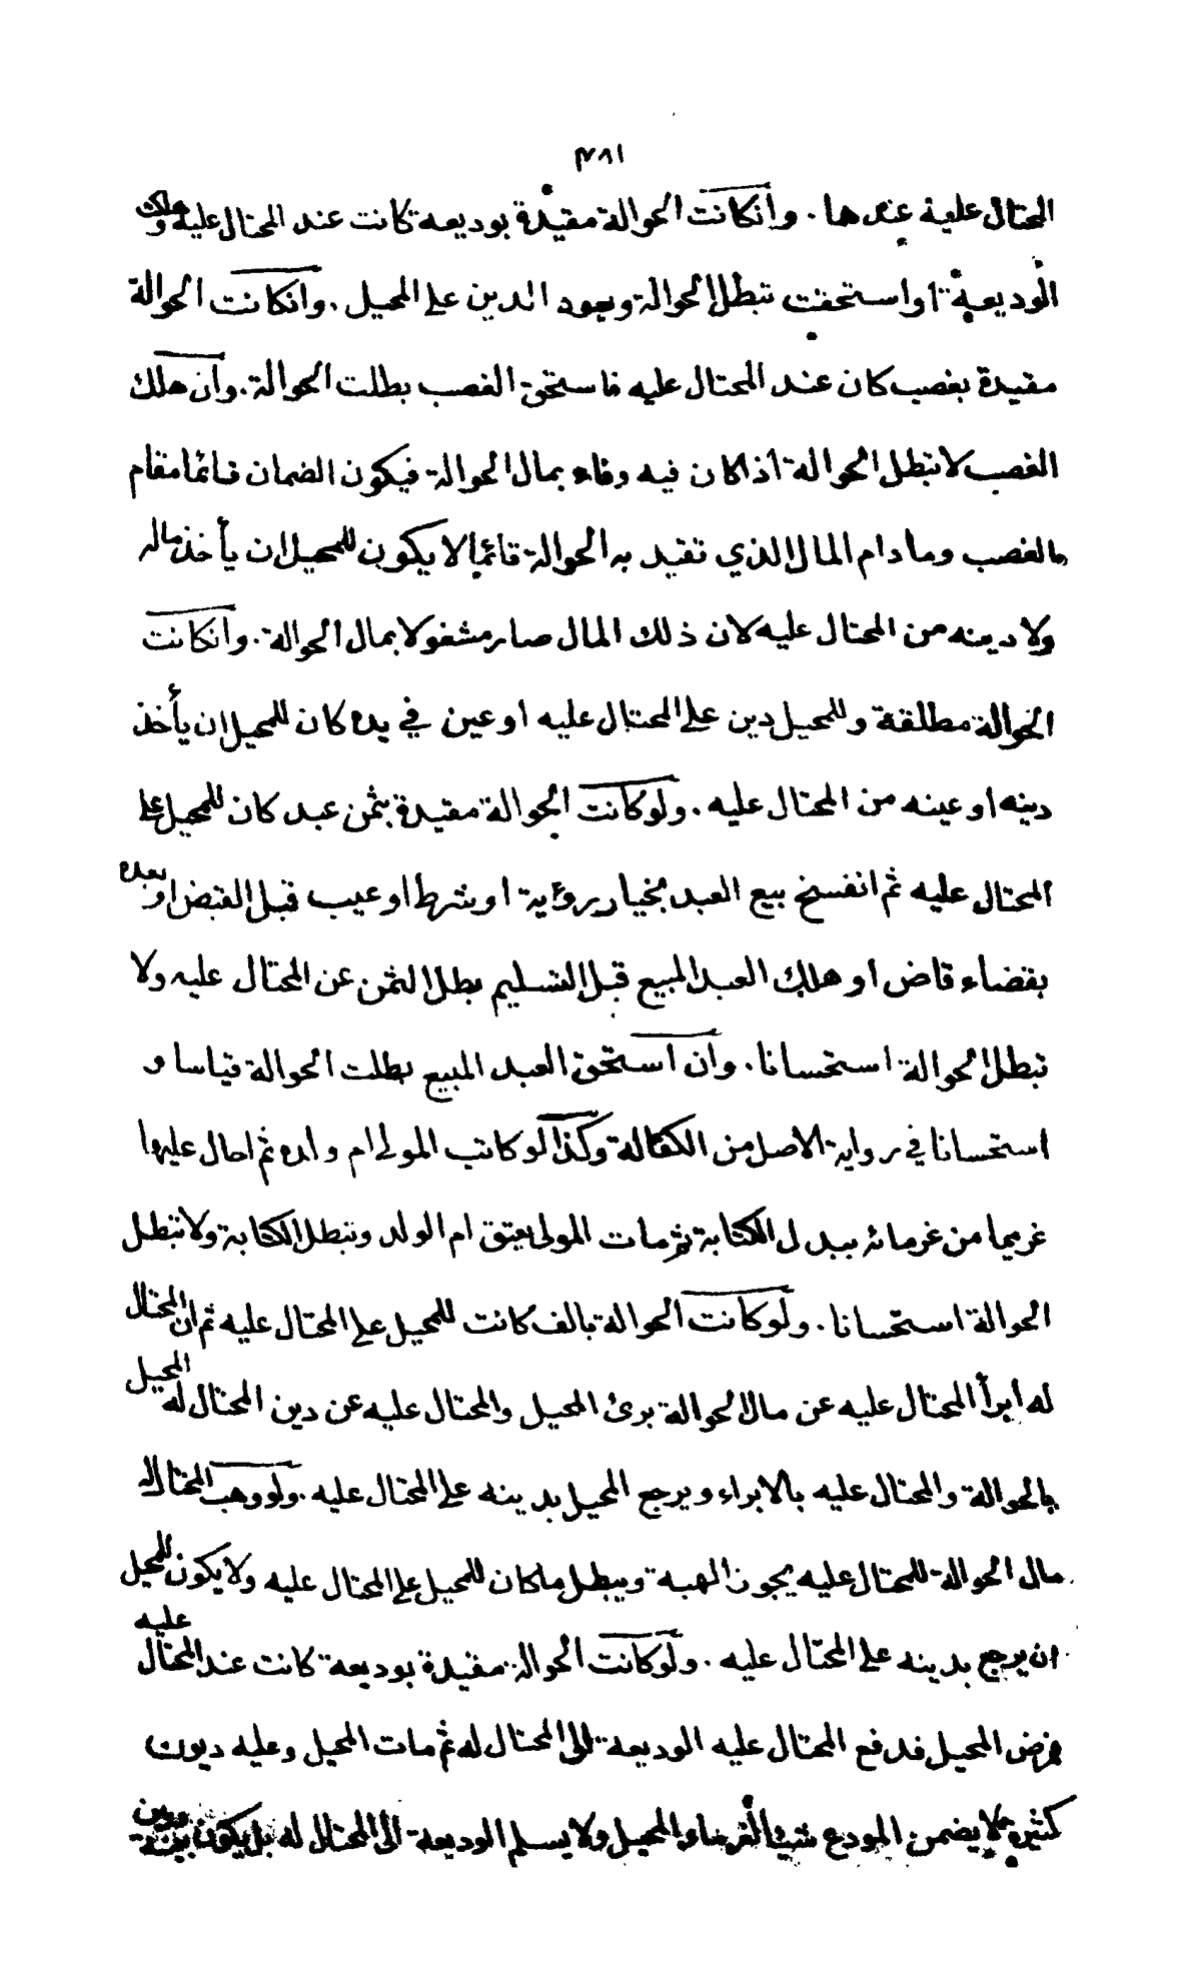 ٣٨١
المحتال عليه عندها . وانكانت الحوالة مقيدة بوديعة كانت عند المحتال عليه وهلكت
الوديعة او استحقت تبطل الحوالة ويعود الدين على المحيل . وانكانت الحوالة
مقيدة بغصب كان عند المحتال عليه فاستحق الغصب بطلت الحوالة . وان هلك
الغصب لا تبطل الحوالة اذا كان فيه وفاء بمال الحوالة فيكون الضمان قائما مقام
الغصب وما دام المال الذي تقيد به الحوالة قائما لا يكون للمحيل ان يأخذ ماله
ولا دينه من المحتال عليه لان ذلك المال صار مشغولا بمال الحوالة . وانكانت
الحوالة مطلقة وللمحيل دين على المحتال عليه او عين في يده كان للمحيل ان يأخذ
دينه او عينه من المحتال عليه . ولو كانت الحوالة مقيدة بثمن عبد كان للمحيل على
المحتال عليه ثم انفسخ بيع العبد بخيار رؤية او شرط او عيب قبل القبض او بعده
بقضاء قاض او هلك العبد المبيع قبل التسليم بطل الثمن عن المحتال عليه ولا
تبطل الحوالة استحسانا . وان استحق العبد المبيع بطلت الحوالة قياسا و
استحسانا في رواية الاصل من الكفالة وكذا لو كاتب المولى ام ولده ثم احال عليها
غريما من غرمائه ببدل الكتابة ثم مات المولى يعتق ام الولد وتبطل الكتابة ولا تبطل
الحوالة استحسانا . ولو كانت الحوالة بالف كانت للمحيل على المحتال عليه ثم ان المحتال
له أبرأ المحتال عليه عن مال الحوالة برئ المحيل والمحتال عليه عن دين المحتال له المحيل
بالحوالة والمحتال عليه بالابراء ويرجع المحيل بدينه على المحتال عليه . ولو وهب المحتال له
مال الحوالة للمحتال عليه يجوز الهبة ويبطل ما كان للمحيل على المحتال عليه ولا يكون للمحيل
ان يرجع بدينه على المحتال عليه . ولو كانت الحوالة مقيدة بوديعة كانت عند المحتال عليه
فمرض المحيل فدفع المحتال عليه الوديعة الى المحتال له ثم مات المحيل وعليه ديون
كثيرة لا يضمن المودع شيئا لغرماء المحيل ولا يسلم الوديعة الى المحتال له بل يكون بينه وبين